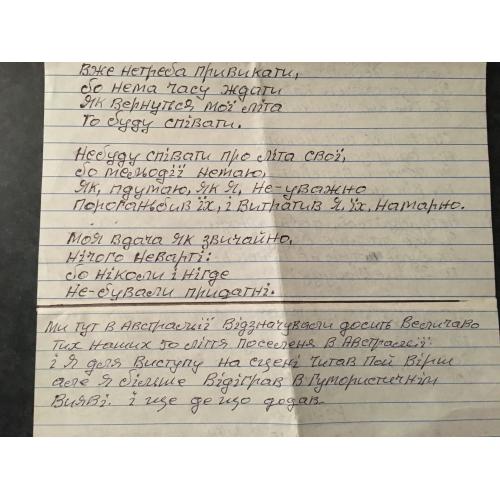 Вже нетреба привикати,
бо нема часу ждати
Як вернуться мої літа
то буду співати.
Небуду співати про літа свої,
бо мельодії немаю,
Як, пдумаю, як я, не-уважно
і витратив я, їх, намарно.
Моя вдача як звичайно,
нічого неварті:
бо ніколи і нігде
не-бували придатні.
Ми тут в Австралії відзначували досить величаво
тих наших 50 ліття поселеня в Австралії:
і я для виступу на сцені читав той вірш
але я більше відіграв в гумористичнім
вияві. і ще де що додав.